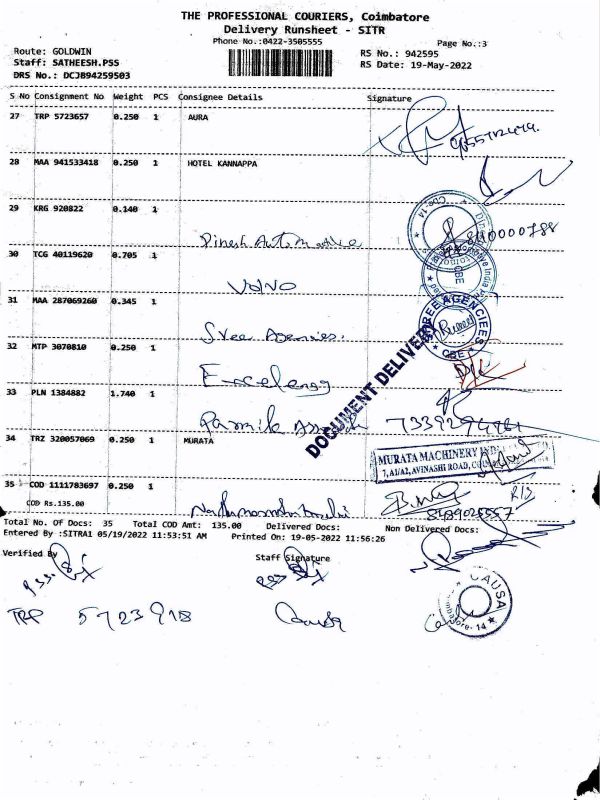 THE PROFESSIONAL COURIERS, Coimbatore
Delivery Runsheet - SITR
Phone No.:0422-3505555
Page No.:3
Route: GOLDWIN
RS No.: 942595
Staff: SATHEESH.PSS
RS Date: 19-May-2022
DRS No.: DCJB94259503
S No Consignment No Weight PCS Consignee Details Signature
27 TRP 5723657 0.250 1 AURA
28 MAA 941533418 0.250 1 HOTEL KANNAPPA
29 KRG 920822 0.140 1
Dinesh Automotive
30 TCG 40119620 0.705 1
Volvo
31 MAA 287069260 0.345 1
Sree Agencies.
SREE AGENCIEES
CBE
32 MTP 3070810 0.250 1
DOCUMENT DELIVERY
33 PLN 1384882 1.740 1
34 TRZ 320057069 0.250 1 MURATA
MURATA MACHINERY
AVINASHI ROAD,
35 COD 1111783697 0.250 1
COD Rs.135.00
Total No. Of Docs: 35 Total COD Amt: 135.00 Delivered Docs: Non Delivered Docs:
Entered By :SITRA1 05/19/2022 11:53:51 AM Printed On: 19-05-2022 11:56:26
Verified By Staff Signature
TRP 5723918 Causa
CAUSA